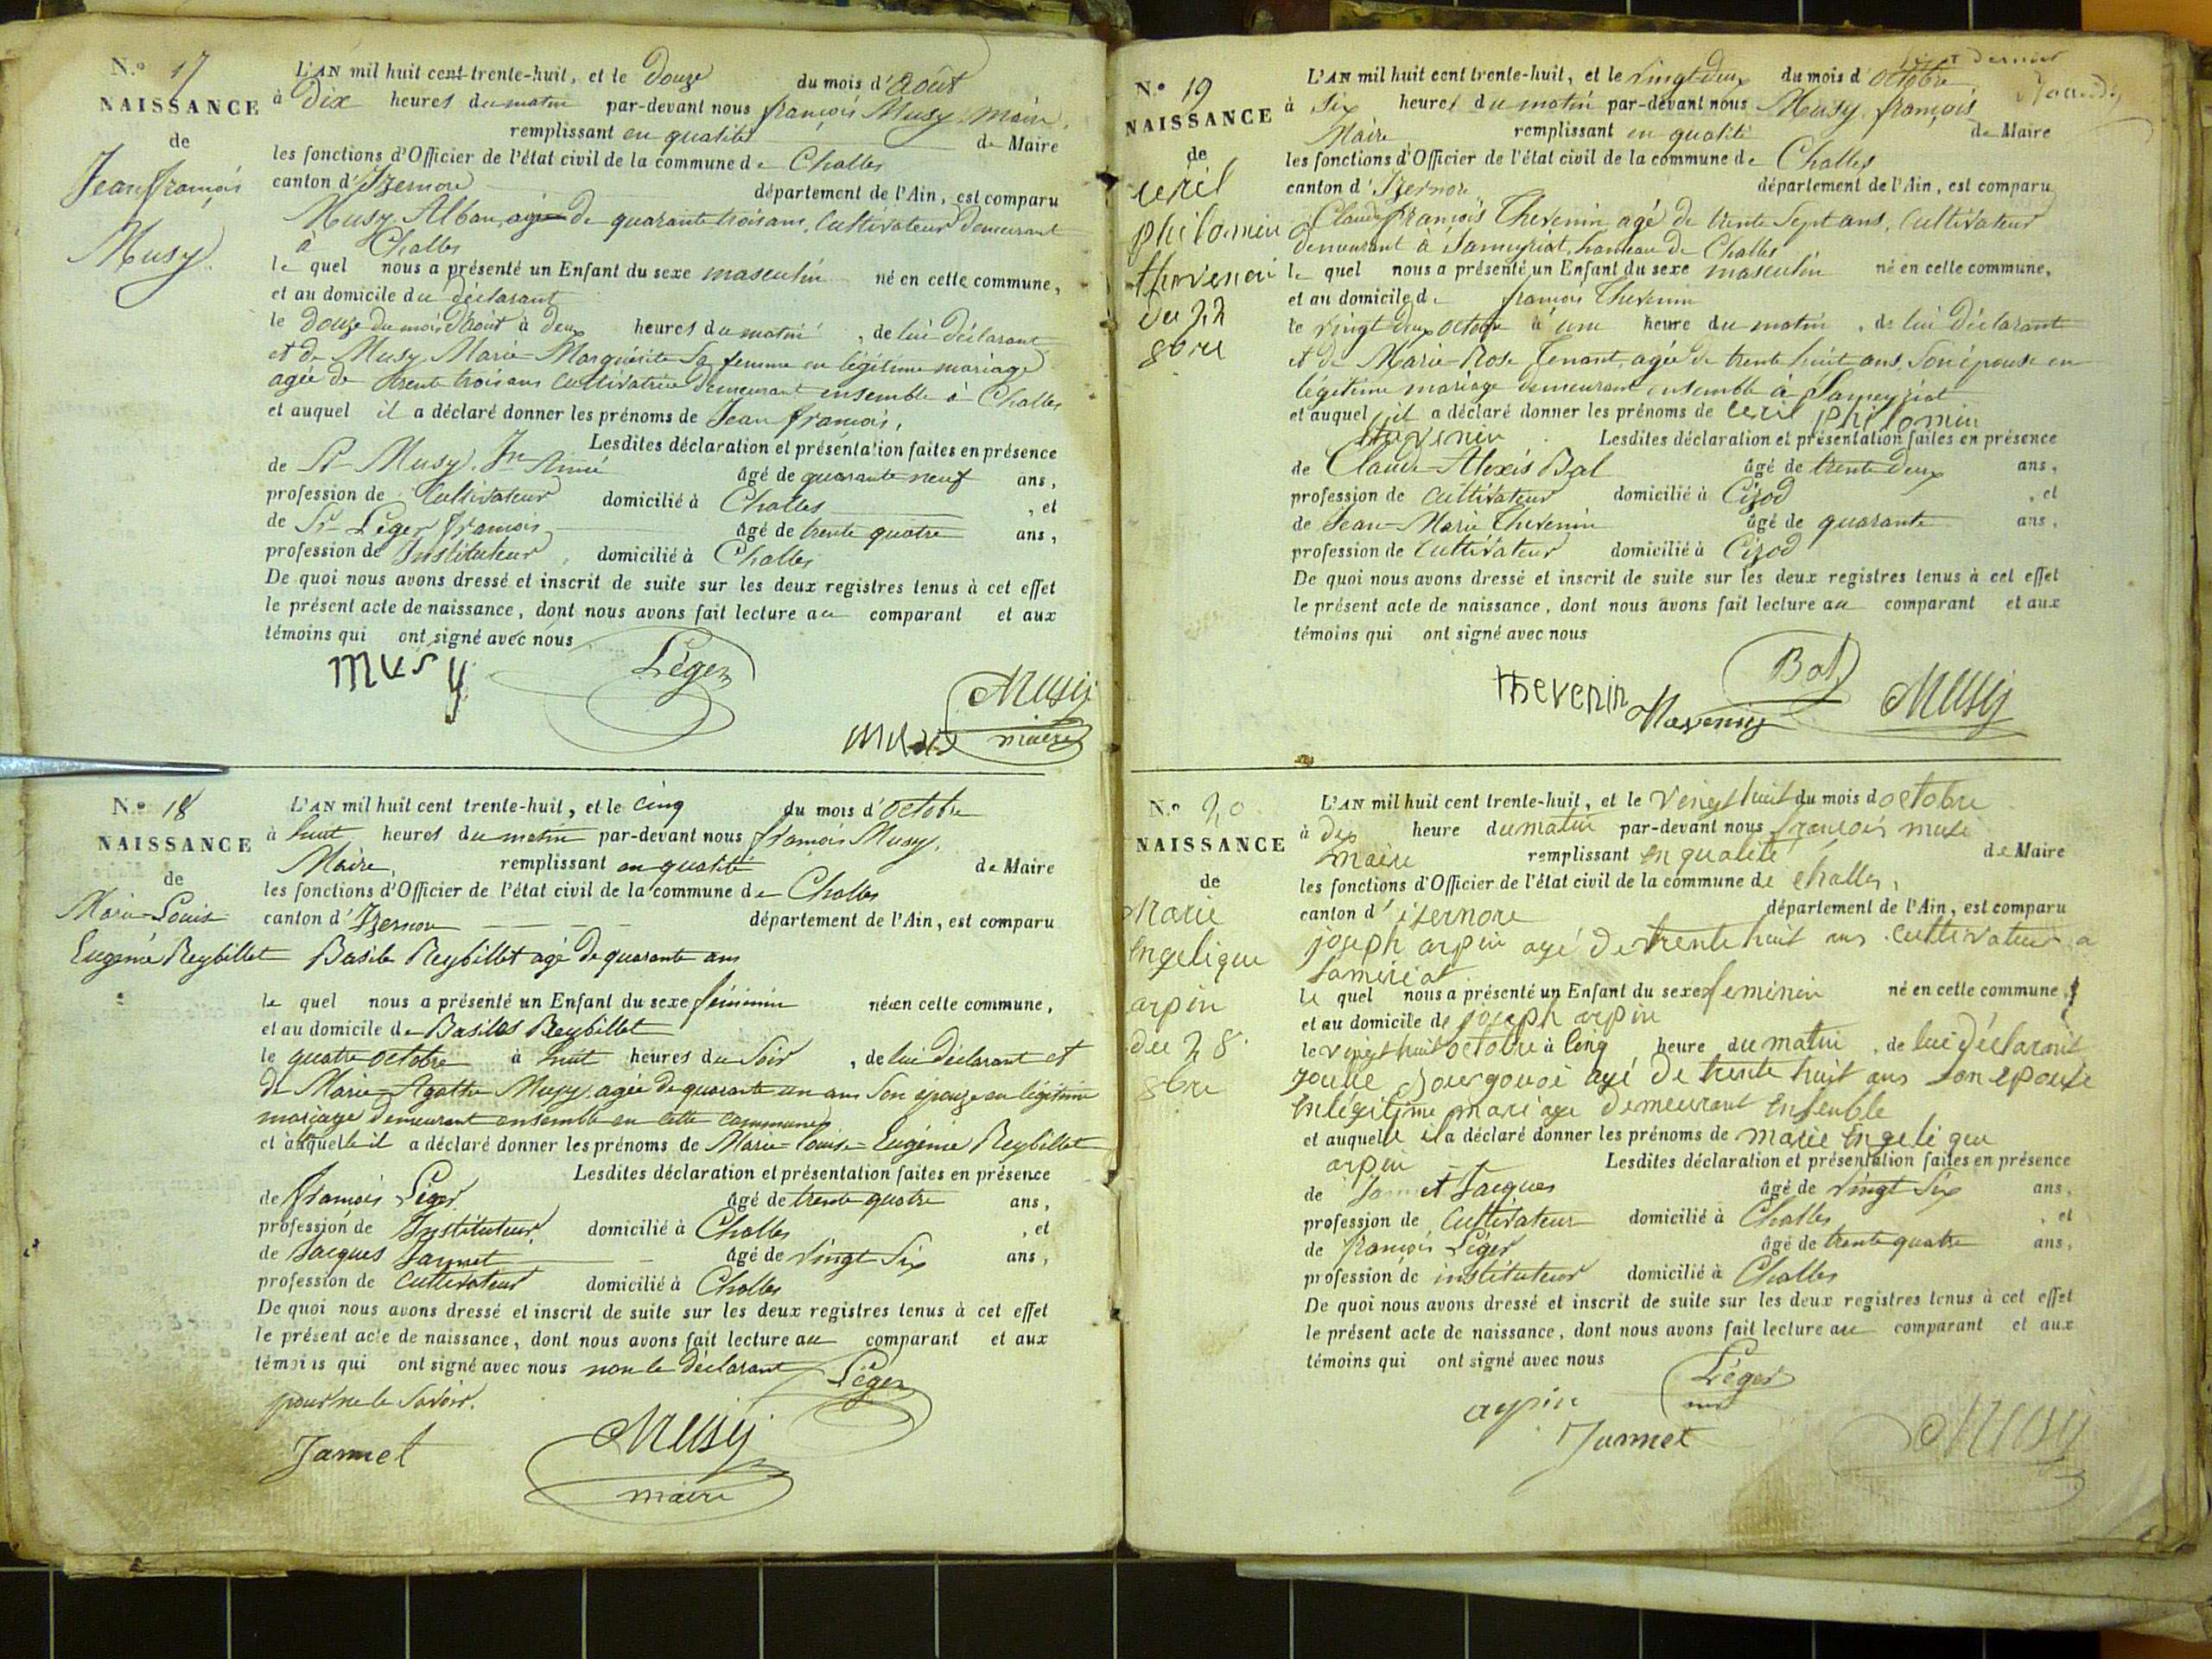 N.° 17
NAISSANCE
de
Jean françois
Musy.
L'AN mil huit cent trente-huit, et le Douze du mois d'Août
à Dix heures du matin par-devant nous françois Musy Maire,
remplissant en qualité de Maire
les fonctions d'Officier de l'état civil de la commune de Challes
canton d'Izernore département de l'Ain, est comparu
Musy Alban, agé de quarante trois ans, Cultivateur demeurant
à Challes
le quel nous a présenté un Enfant du sexe masculin né en cette commune,
et au domicile du déclarant
le Douze du mois d'Août à deux heures du matin, de lui déclarant
et de Musy Marie Marguerite Sa femme en légitime mariage
agée de trente trois ans Cultivatrice demeurant ensemble à Challes
et auquel il a déclaré donner les prénoms de Jean françois,
Lesdites déclaration et présentation faites en présence
de Sr Musy, Jn Aimé âgé de quarante neuf ans,
profession de Cultivateur domicilié à Challes, et
de Sr Léger françois âgé de trente quatre ans,
profession de Instituteur, domicilié à Challes
De quoi nous avons dressé et inscrit de suite sur les deux registres tenus à cet effet
le présent acte de naissance, dont nous avons fait lecture au comparant et aux
témoins qui ont signé avec nous
musy
Léger
Musy
maire
N.° 18
NAISSANCE
de
Marie-Louise
Eugénie Reybillet
L'AN mil huit cent trente-huit, et le Cinq du mois d'Octobre
à huit heures du matin par-devant nous françois Musy,
Maire, remplissant en qualité de Maire
les fonctions d'Officier de l'état civil de la commune de Challes
canton d'Izernore département de l'Ain, est comparu
Basile Reybillet agé de quarante ans
le quel nous a présenté un Enfant du sexe féminin née en cette commune,
et au domicile de Basile Reybillet
le quatre octobre à huit heures du Soir, de lui déclarant et
de Marie-Agathe Musy agée de quarante un ans Son épouze en légitime
mariage demeurant ensemble en cette commune
et à laquelle il a déclaré donner les prénoms de Marie-Louise-Eugénie Reybillet
Lesdites déclaration et présentation faites en présence
de françois Léger âgé de trente quatre ans,
profession de Instituteur domicilié à Challes, et
de Jacques Jannet âgé de vingt Six ans,
profession de Cultivateur domicilié à Challes
De quoi nous avons dressé et inscrit de suite sur les deux registres tenus à cet effet
le présent acte de naissance, dont nous avons fait lecture au comparant et aux
témoins qui ont signé avec nous non le déclarant
pour ne le Savoir.
Léger
Jannet
Musy
maire
dernier
N.° 19
NAISSANCE
de
ceril
philomin
thavenin
du 22
8bre
L'AN mil huit cent trente-huit, et le vingt deux du mois d'Octobre
à Six heures du matin par-devant nous Musy, françois,
Maire remplissant en qualité de Maire
les fonctions d'Officier de l'état civil de la commune de Challes
canton d'Izernore département de l'Ain, est comparu
Claude françois Thevenin agé de trente Sept ans, Cultivateur
demeurant à Sameyriat, hameau de Challes
le quel nous a présenté un Enfant du sexe masculin né en cette commune,
et au domicile de françois Thevenin
le vingt deux octobre à une heure du matin, de lui Déclarant
et de Marie-Rose Tenant, agée de trente huit ans, Son épouse en
légitime mariage demeurant ensemble à Sameyriat
et auquel il a déclaré donner les prénoms de Ceril philomin
thavenin Lesdites déclaration et présentation faites en présence
de Claude-Alexis Bal âgé de trente deux ans,
profession de Cultivateur domicilié à Cizod, et
de Jean-Marie Thevenin âgé de quarante ans,
profession de Cultivateur domicilié à Cizod
De quoi nous avons dressé et inscrit de suite sur les deux registres tenus à cet effet
le présent acte de naissance, dont nous avons fait lecture au comparant et aux
témoins qui ont signé avec nous
thevenin
Thavenin
Bal
Musy
N.° 20
NAISSANCE
de
Marie
engelique
arpin
du 28
8bre
L'AN mil huit cent trente-huit, et le vingt huit du mois d'octobre
à dix heure du matin par-devant nous françois musi
maire remplissant en qualité de Maire
les fonctions d'Officier de l'état civil de la commune de challes,
canton d'isernore département de l'Ain, est comparu
joseph arpin agé de trente huit ans cultivateur a
Sameriat
le quel nous a présenté un Enfant du sexe feminin né en cette commune,
et au domicile de joseph arpin
le vingt huit octobre à cinq heure du matin, de lui déclarant
agé de trente huit ans son epouse
en légitime mariage demeurant ensemble
et auquelle il a déclaré donner les prénoms de marie engelique
arpin Lesdites déclaration et présentation faites en présence
de Jannet Jacques âgé de vingt Six ans,
profession de Cultivateur domicilié à Challes, et
de françois Léger âgé de trente quatre ans,
profession de instituteur domicilié à Challes
De quoi nous avons dressé et inscrit de suite sur les deux registres tenus à cet effet
le présent acte de naissance, dont nous avons fait lecture au comparant et aux
témoins qui ont signé avec nous
arpin
Léger
Jannet
Musy